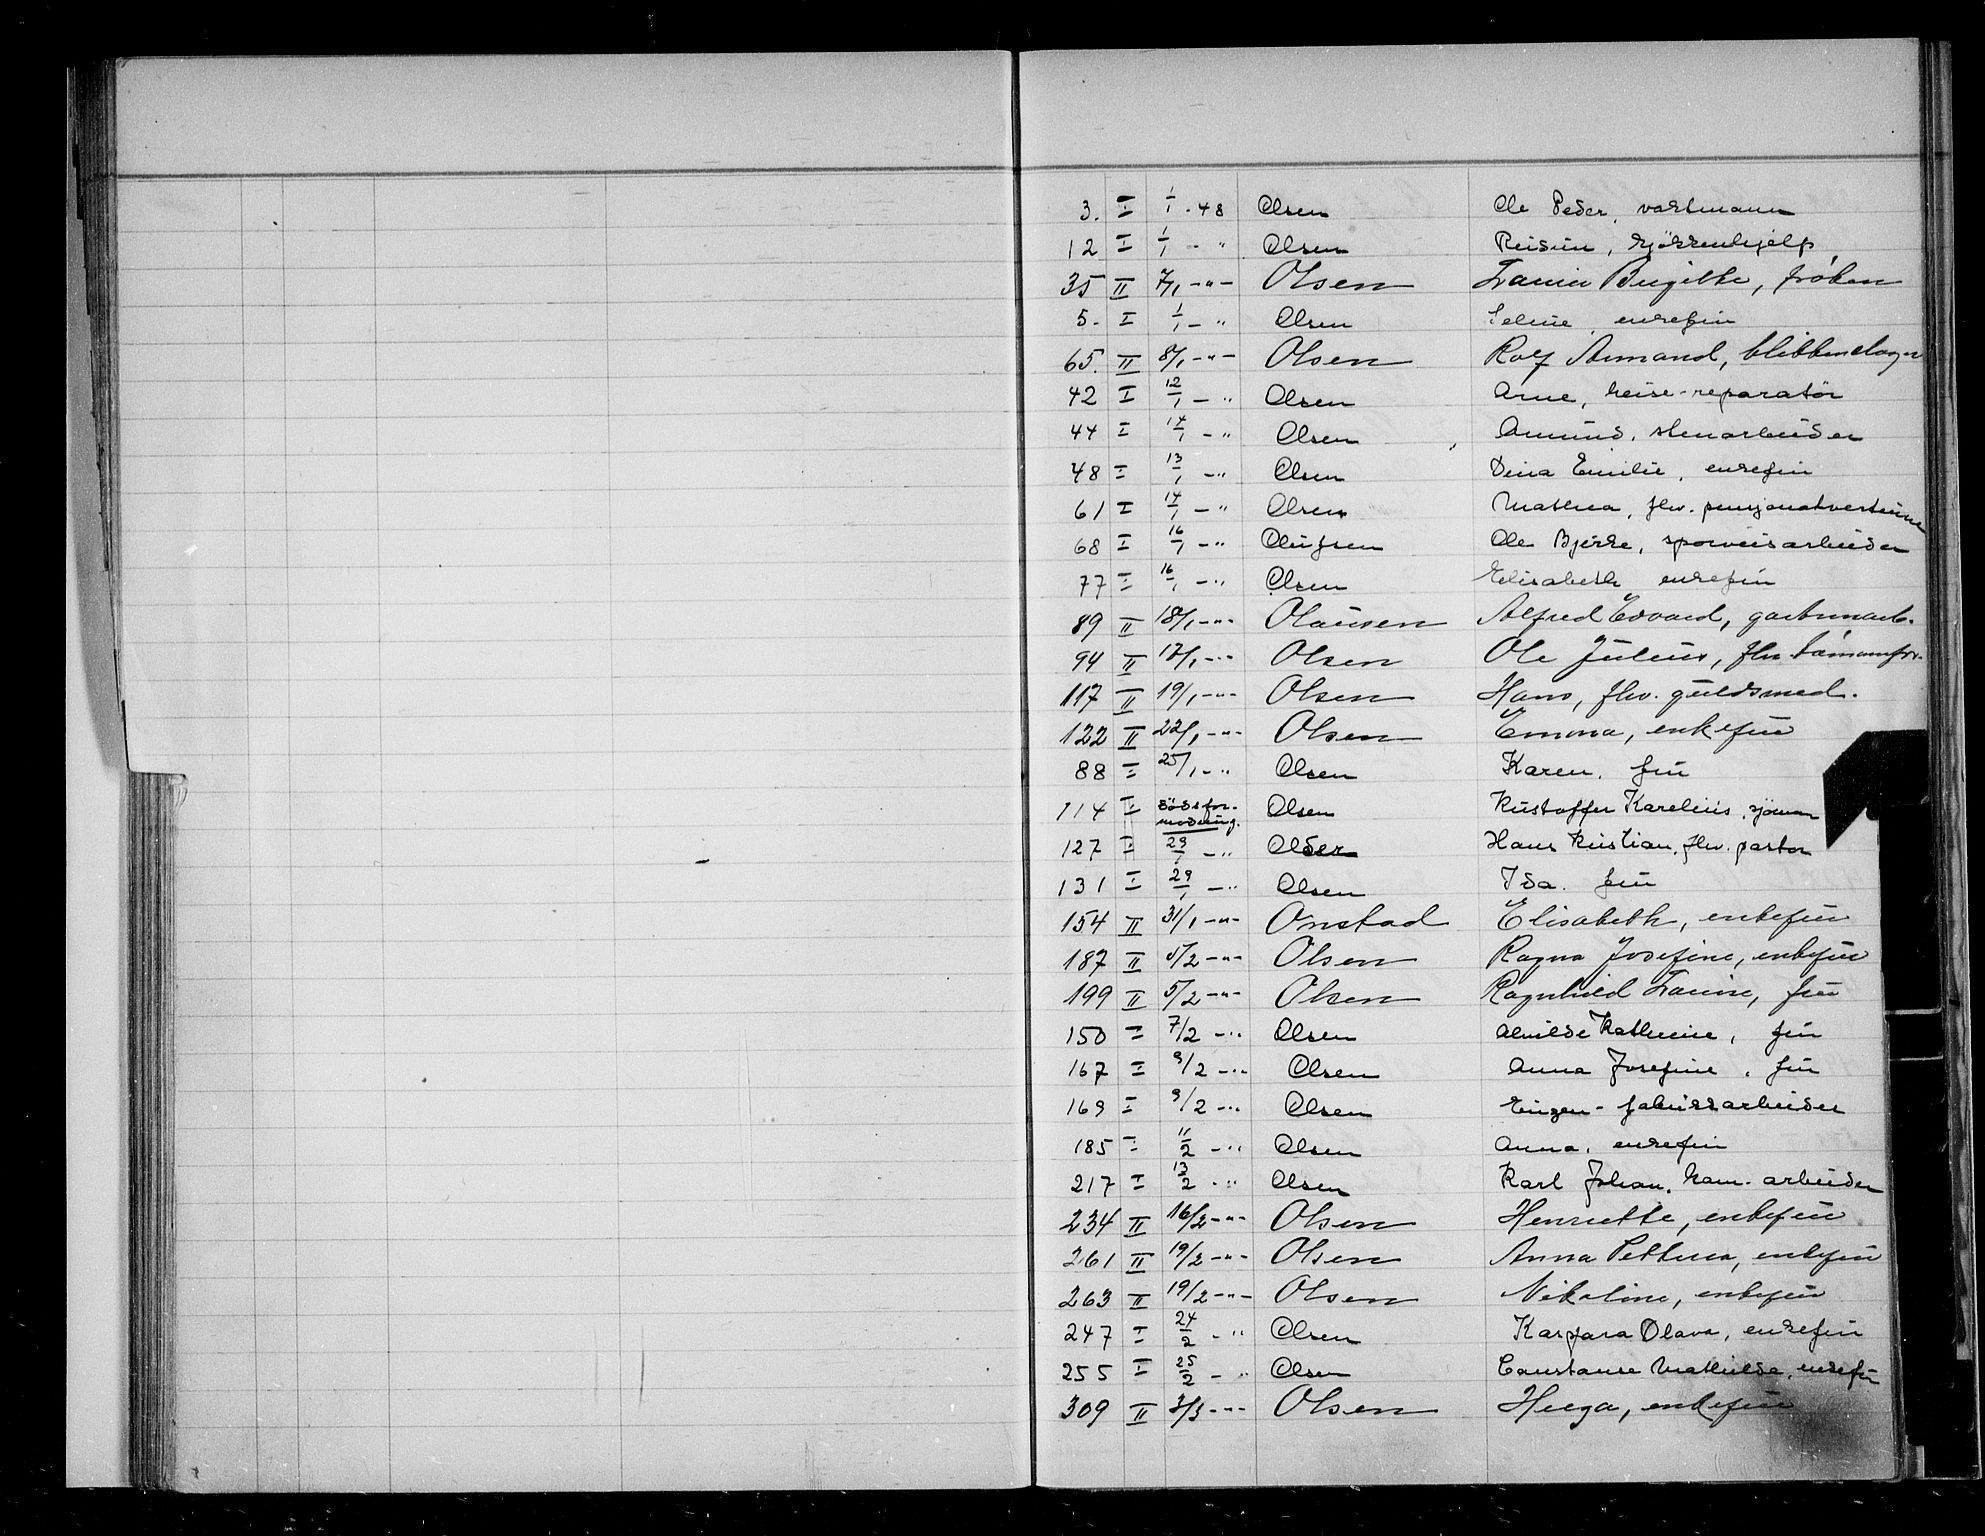 3. I 1/1 - 48 Olsen Ole Peder, vaktmann
12 I 1/1 - " Olsen kjøkkenhjelp
35 II 7/1 -"- Olsen Birgitte, frøken
5. I 1/1 - " Olsen enkefru
65. II 8/1 -"- Olsen Rolf Armand, blikkenslager
42 I 12/1 - " Olsen Arne, heise-reparatør
44 I 14/1 - " Olsen Amund, stenarbeider
48 I 13/1 - " Olsen Dina Emilie, enkefru
61 I 14/1 - " Olsen Mathea, fhv. pensjonatvertinne
68 I 16/1 - " Olufsen Ole Bjerke, sporveisarbeider
77 I 16/1 - " Olsen Elisabeth enkefru
89 II 18/1 -"- Olausen Alfred Edvard, gartnerarb.
94 II 17/1 -"- Olsen Ole Julius, fhv.
117 II 19/1 -"- Olsen Hans, fhv. guldsmed.
122 II 22/1 -"- Olsen Emma, enkefru
88 I 25/1 - " Olsen Karen. fru
114 I dødsfor-
modning. Olsen Kristoffer Karelius, sjømann
127 I 29/1 - " Olsen Hans Kristian, fhv. pastor
131 I 29/1 - " Olsen Ida. fru
154 II 31/1 -"- Onstad Elisabeth, enkefru
187 II /2 -"- Olsen Ragna Josefine, enkefru
199 II 5/2 -"- Olsen Ragnhild Laurine, fru
150 I 7/2 - " Olsen Alvilde Kathrine, fru
167 I 9/2 - " Olsen Anna Josefine, fru
169 I 9/2 - " Olsen Eugen - fabrikkarbeider
185 I 11/2 - " Olsen Anna, enkefru
217 I 13/2 - " Olsen Karl Johan, kom. arbeider
234 II 16/2 -"- Olsen Henriette, enkefru
261 II 19/2 -"- Olsen Anna Petterea, enkefru
263 II 19/2 -"- Olsen Nikoline, enkefru
247 I 24/2 - " Olsen Kaspara Olava, enkefru
255 I 25/2 - " Olsen Constanse Mathilde, enkefru
309 II 3/3 -"- Olsen Helga, enkefru